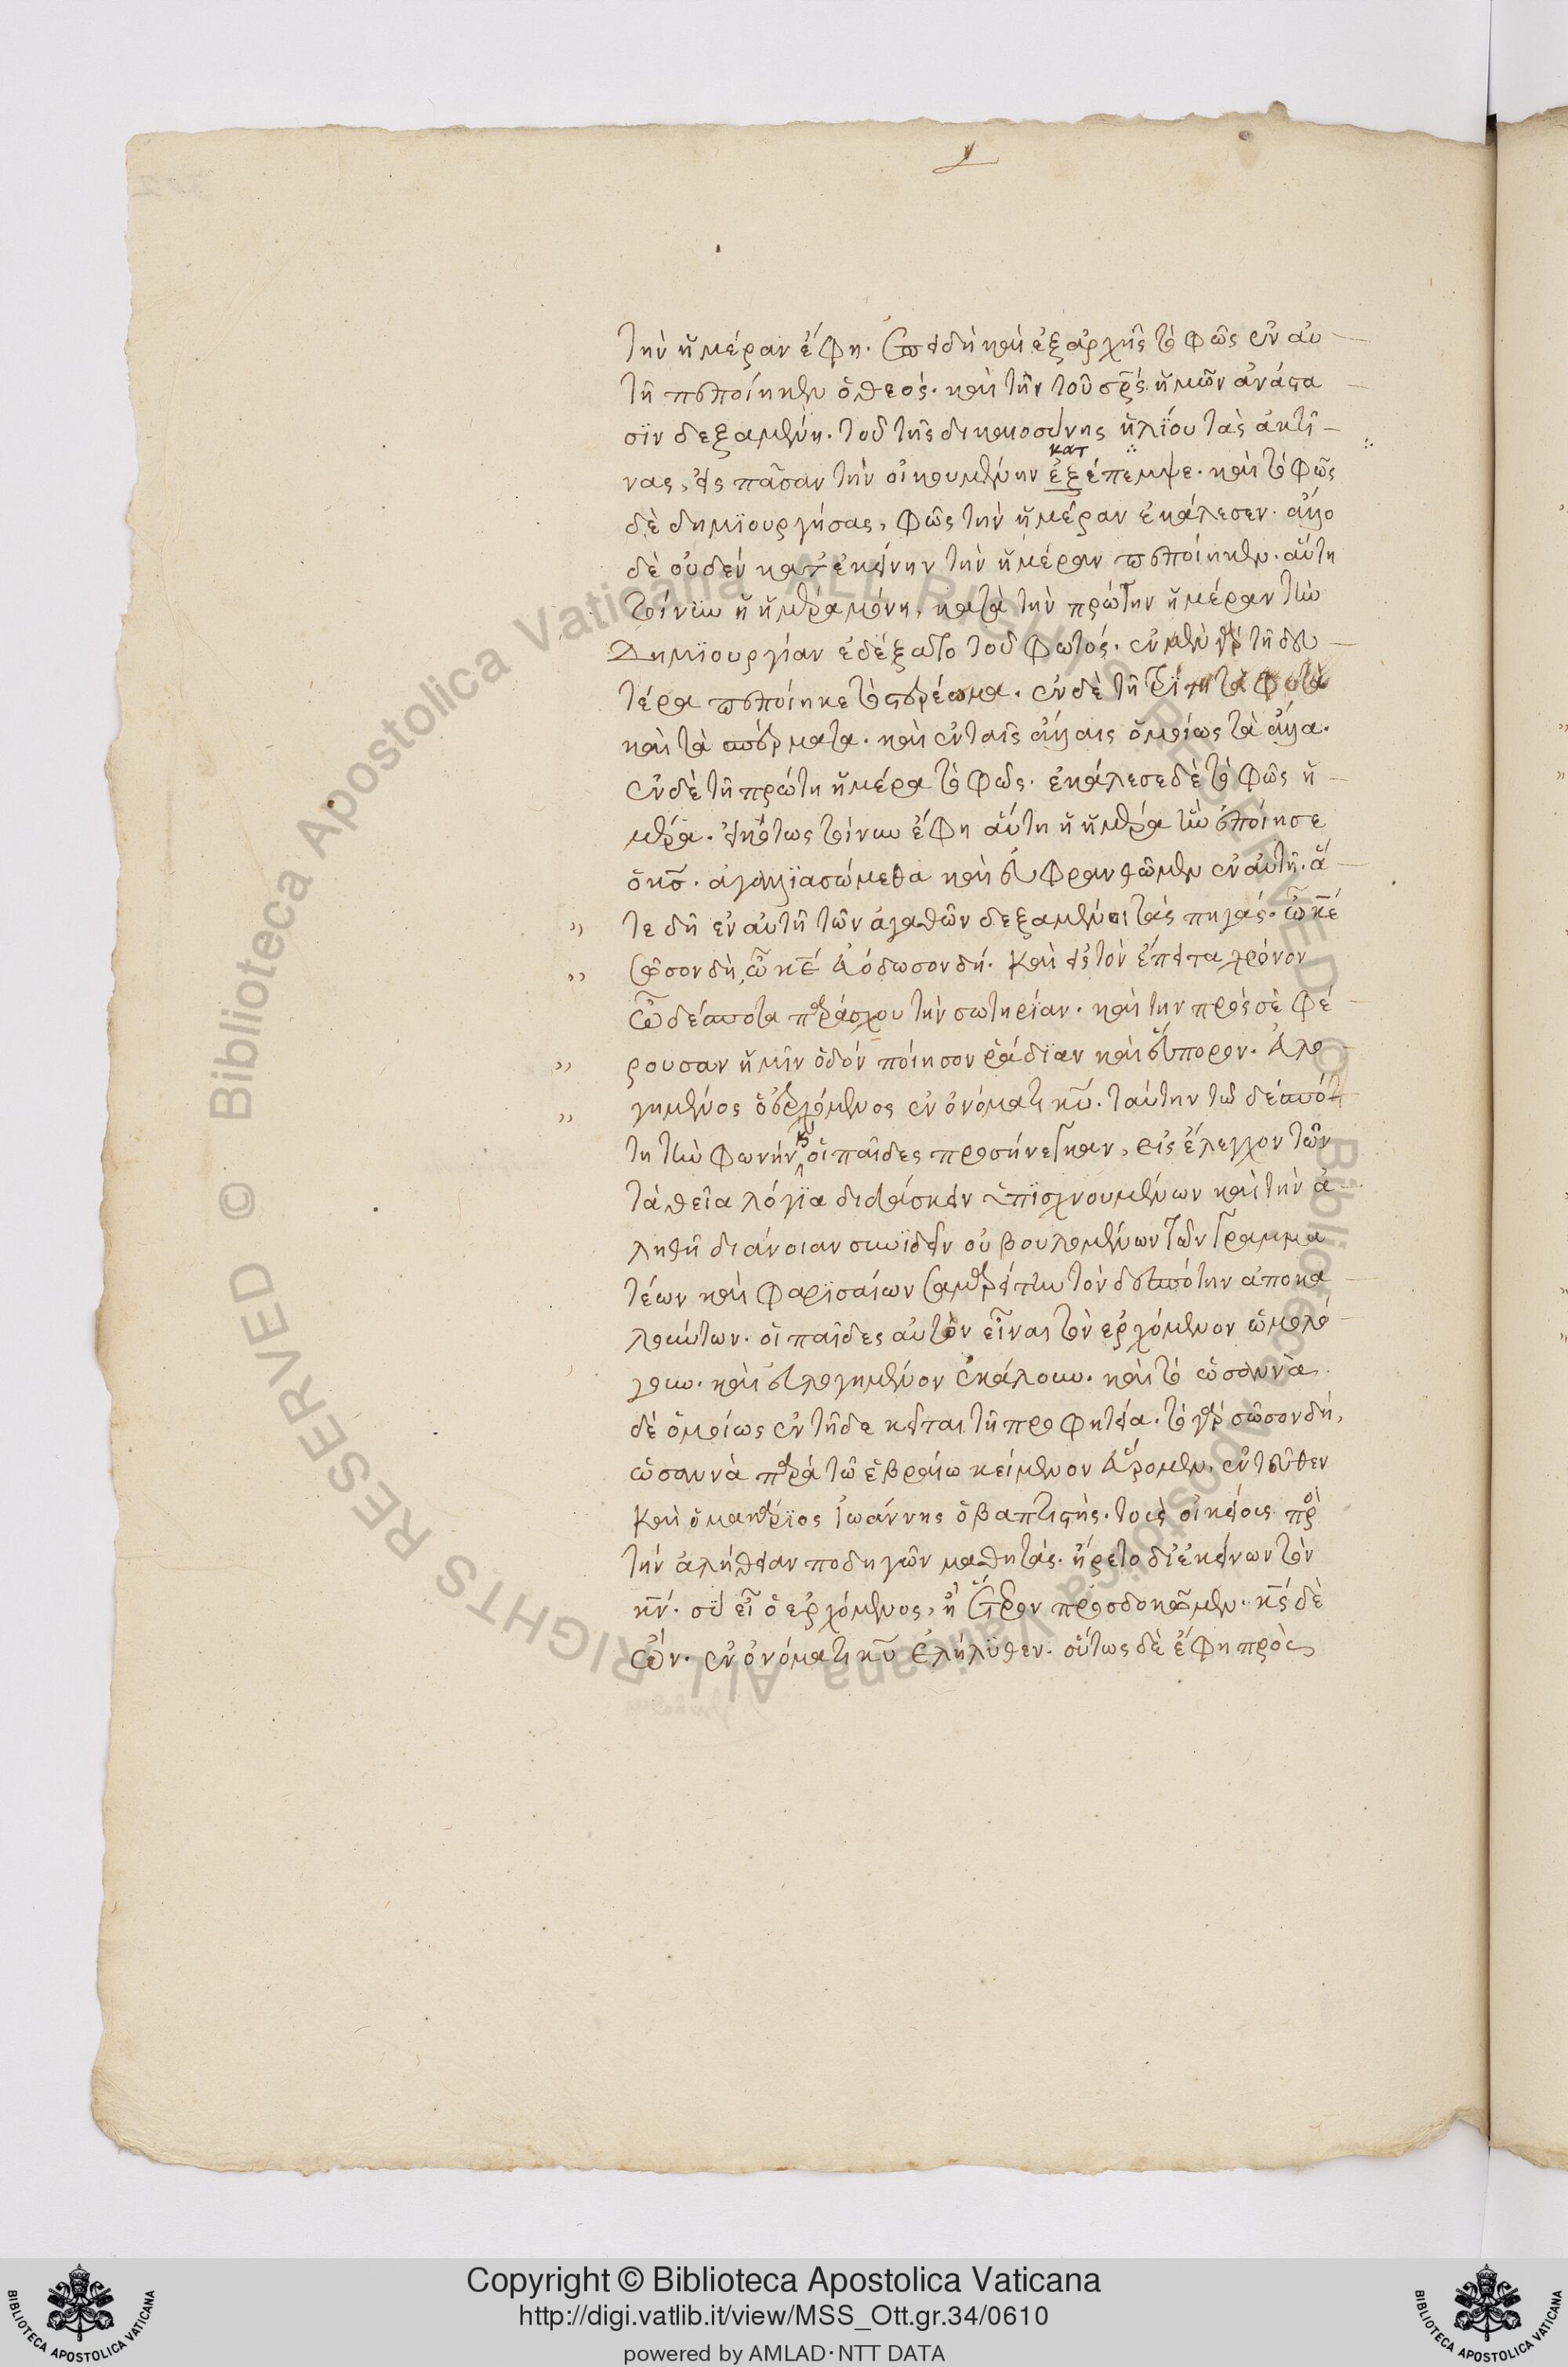 τὴν ἡμέραν ἔφη. ἐπειδὴ καὶ ἐξ ἀρχῆς τὸ φῶς ἐν αὐ
τῇ πεποίηκεν ὁ θεός. καὶ τὴν τοῦ σρ̅ς ἡμῶν ἀνάστα
σϊν δεξαμένη. τοῦ τῆς δικαιοσύνης ἡλίου τὰς ἀκτῖ
κατ
νας, εἰς πᾶσαν τὴν οἰκουμένην ἐξέπεμψε. καὶ τὸ φῶς
δὲ δημϊουργήσας, φῶς τὴν ἡμέραν ἐκάλεσεν. ἄλλο
δὲ οὐδὲν κατ' ἐκείνην τὴν ἡμέραν πεποίηκεν. αὕτη
τοίνυν ἡ ἡμέρα μόνη, κατὰ τὴν πρώτην ἡμέραν τὴν
Δημϊουργίαν ἐδέξατο τοῦ φωτός. ἐν μὲν γὰρ τῇ δευ
τέρα πεποίηκε τὸ στερέωμα. ἐν δὲ τῇ τρίτη τὰ φυτὰ
καὶ τὰ σπέρματα. καὶ ἐν ταῖς ἄλλαις ὁμοίως τὰ ἄλλα.
ἐν δὲ τῇ πρώτη ἡμέρα τὸ φῶς. ἐκάλεσε δὲ τὸ φῶς ἡ
μέρα. εἰκότως τοίνυν ἔφη αὕτη ἡ ἡμέρα ἣν ἐποίησε
ὁ κς̅. ἀγαλλϊασώμεθα καὶ εὐφρανθῶμεν ἐν αὐτῇ. ἅ
τε δὴ ἐν αὐτῇ τῶν ἀγαθῶν δεξαμένοι τὰς πηγάς. ὦ κ̅ε
σῶσον δὴ, ὦ κ̅ε εὐόδωσον δή. καὶ εἰς τὸν ἔπειτα χρόνον
ὦ δέσποτα παράσχου τὴν σωτηρίαν. καὶ τὴν πρὸς σὲ φέ
ρουσαν ἡμῖν ὁδὸν ποίησον ῥαδϊαν καὶ εὔπορον. εὐλο
γημένος ὁ ἐρχόμενος ἐν ὀνόματι κυ̅. ταύτην τῷ δεσπότ
τη τὴν φωνὴν καὶ οἱ παῖδες προσήνεγκαν, εἰς ἔλεγχον τῶν
τὰ θεῖα λόγϊα διδάσκειν ὑπϊσχνουμένων καὶ τὴν ἀ
ληθῆ διάνοιαν συνϊδεῖν οὐ βουλομένων τῶν γραμμα
τέων καὶ φαρϊσαίων σαμαρείτην τὸν δεσπότην ἀποκα
λούντων. οἱ παῖδες αὐτὸν εἶναι τὸν ἐρχόμενον ὡμολό
γουν. καὶ εὐλογημένον ἐκάλουν. καὶ τὸ ὡσαννὰ
δὲ ὁμοίως ἐν τῇδε κεῖται τῇ προφητεία. τὸ γὰρ σῶσον δή,
ὡσαννὰ παρὰ τῷ ἑβραίω κείμενον εὕρομεν. ἐντεῦθεν
καὶ ὁ μακάρϊος ἰωάννης ὁ βαπτιστής. τοὺς οἰκείους πρὸ
τὴν ἀλήθειαν ποδηγῶν μαθητάς. ἤρετο δι' ἐκείνων τὸν
κν̅. σὺ εἶ ὁ ἐρχόμενος, ἢ ἕτερον προσδοκῶμεν. κς̅ δὲ
ὤν. ἐν ὀνόματι κυ̅ ἐλήλυθεν. οὕτως δὲ ἔφη πρὸς
Copyright © Biblioteca Apostolica Vaticana
http://digi.vatlib.it/view/MSS_Ott.gr.34/0610
powered by AMLAD·NTT DATA